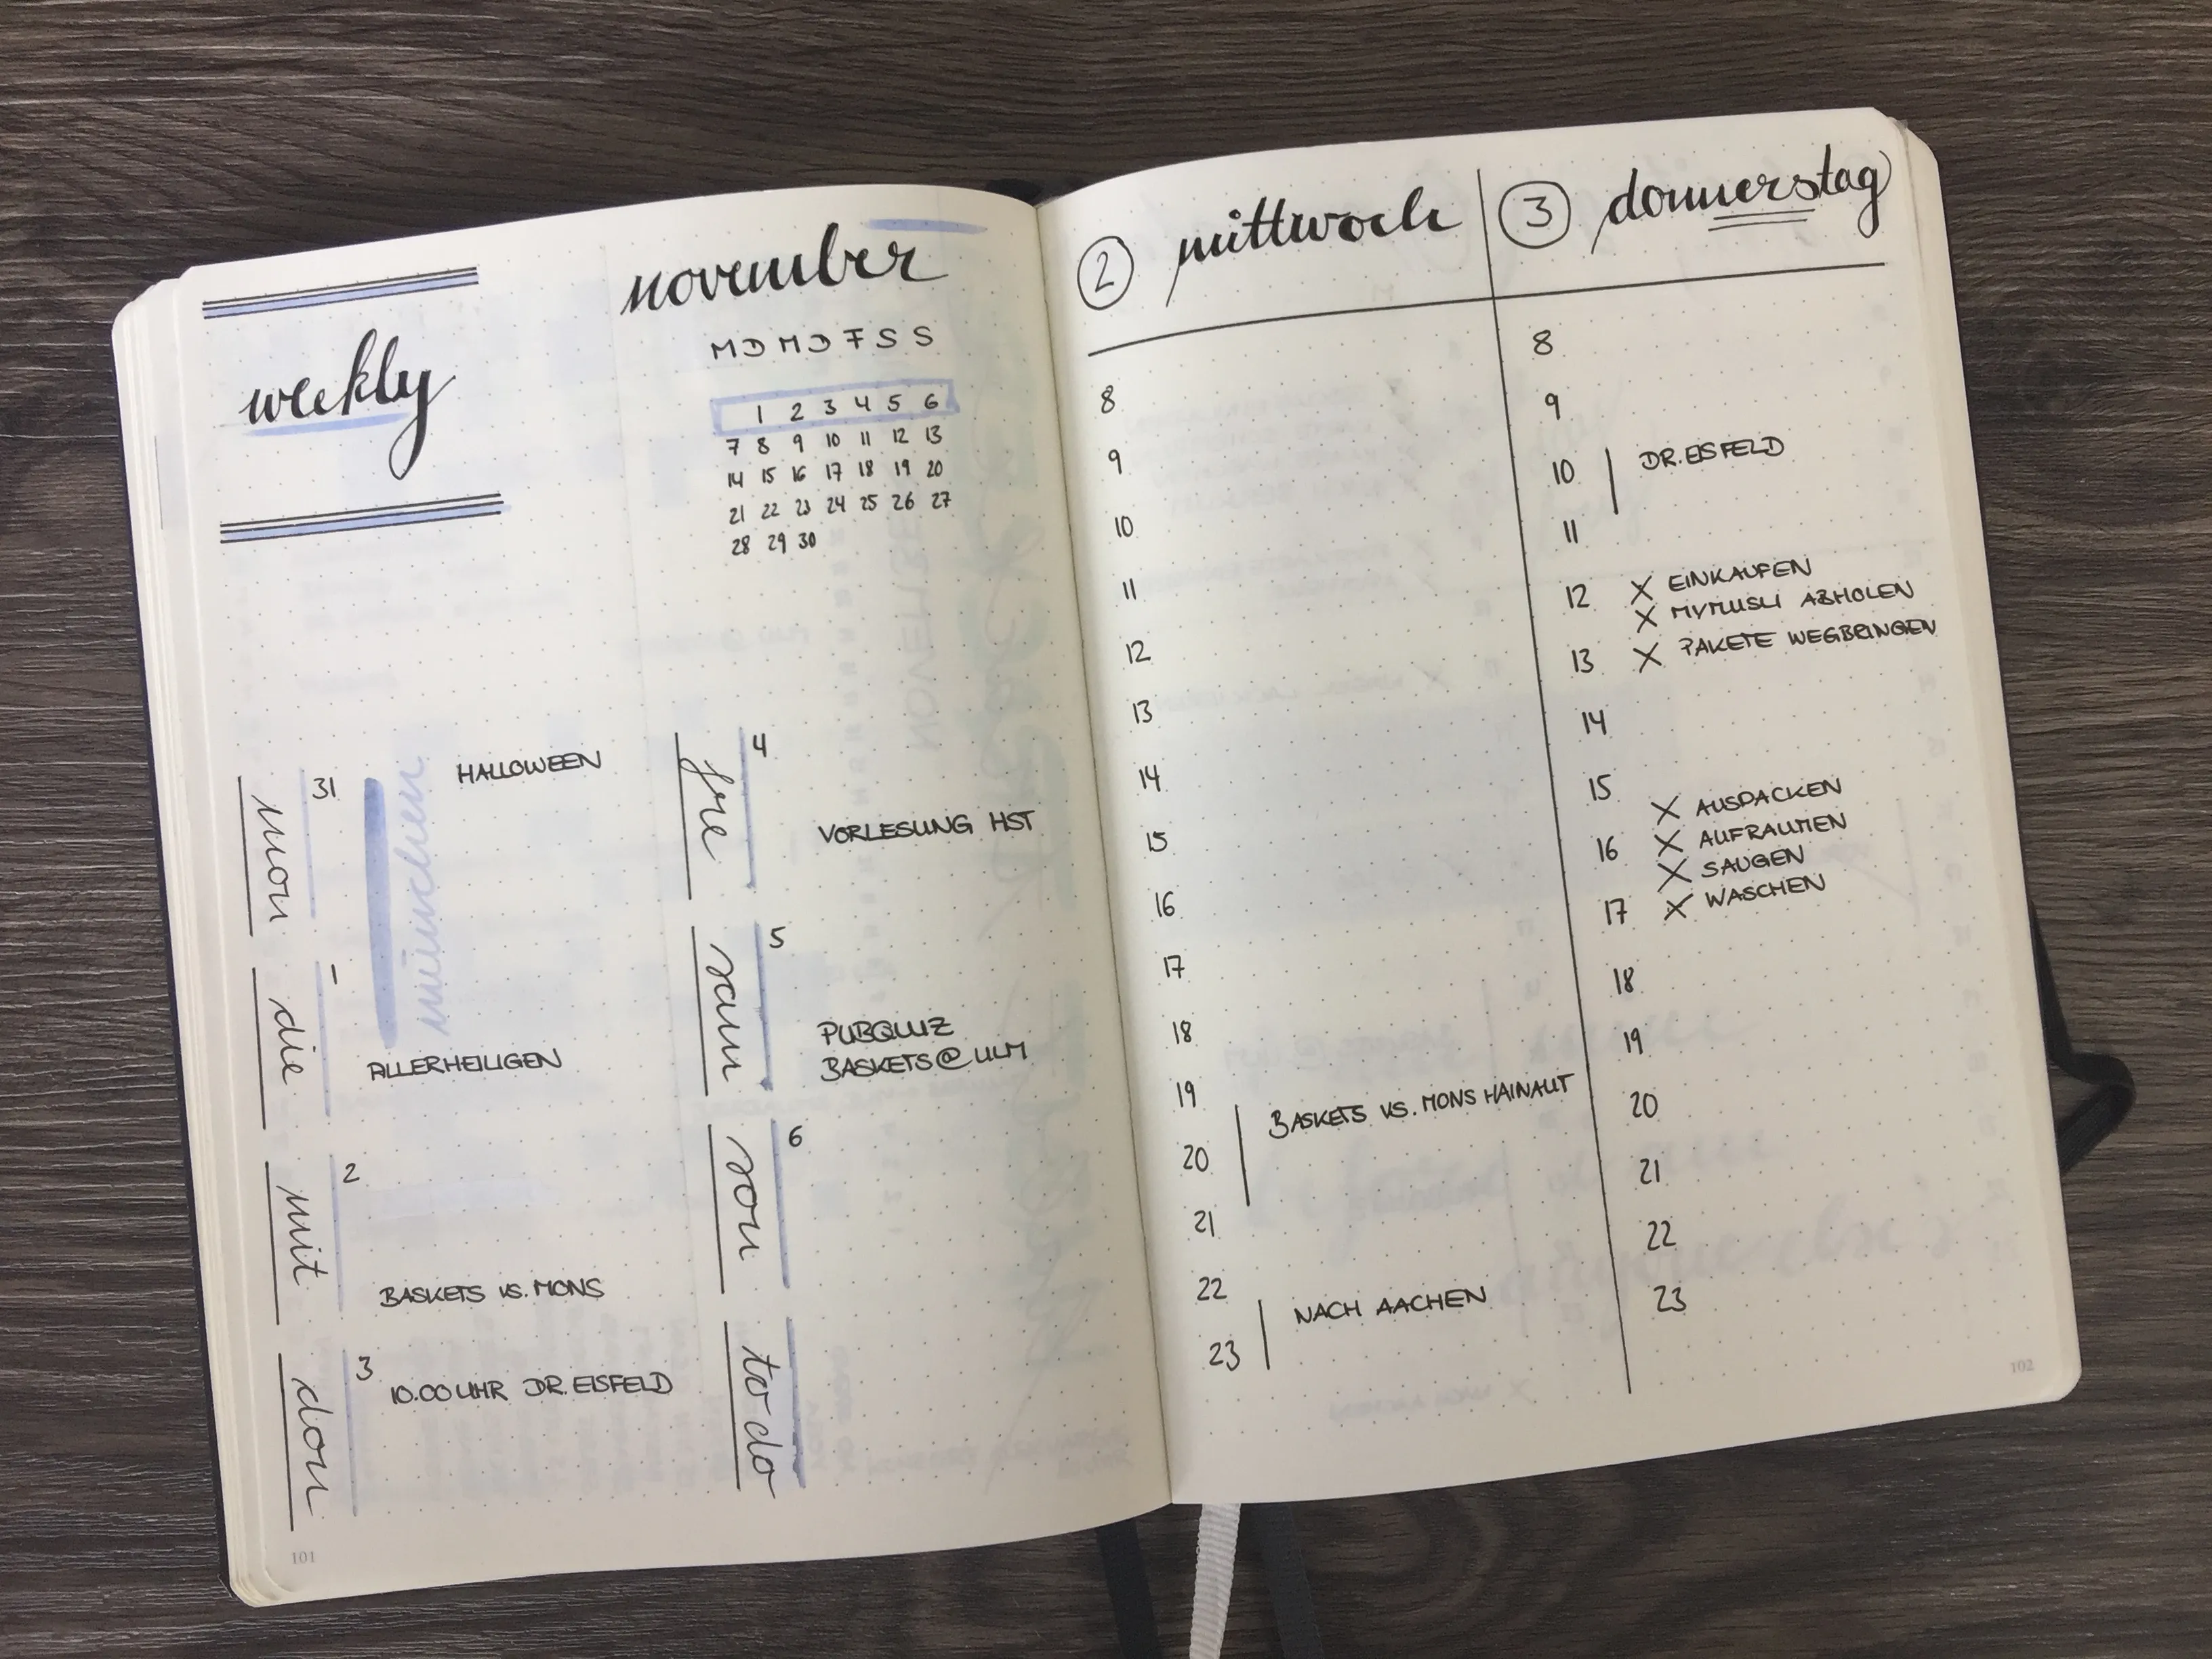 weekly
november
M D M D F S S
1 2 3 4 5 6
7 8 9 10 11 12 13
14 15 16 17 18 19 20
21 22 23 24 25 26 27
28 29 30
mon
31
münchen
HALLOWEEN
die
1
ALLERHEILIGEN
mit
2
BASKETS VS. MONS
don
3
10.00 UHR DR. EISFELD
fre
4
VORLESUNG HST
sam
5
PUBQUIZ
BASKETS @ ULM
son
6
to do
101
2 mittwoch
8
9
10
11
12
13
14
15
16
17
18
19
BASKETS VS. MONS HAINAUT
20
21
22
NACH AACHEN
23
3 donnerstag
8
9
10 DR. EISFELD
11
12 X EINKAUFEN
X MYMUSLI ABHOLEN
13 X PAKETE WEGBRINGEN
14
15
X AUSPACKEN
16 X AUFRÄUMEN
X SAUGEN
17 X WASCHEN
18
19
20
21
22
23
102